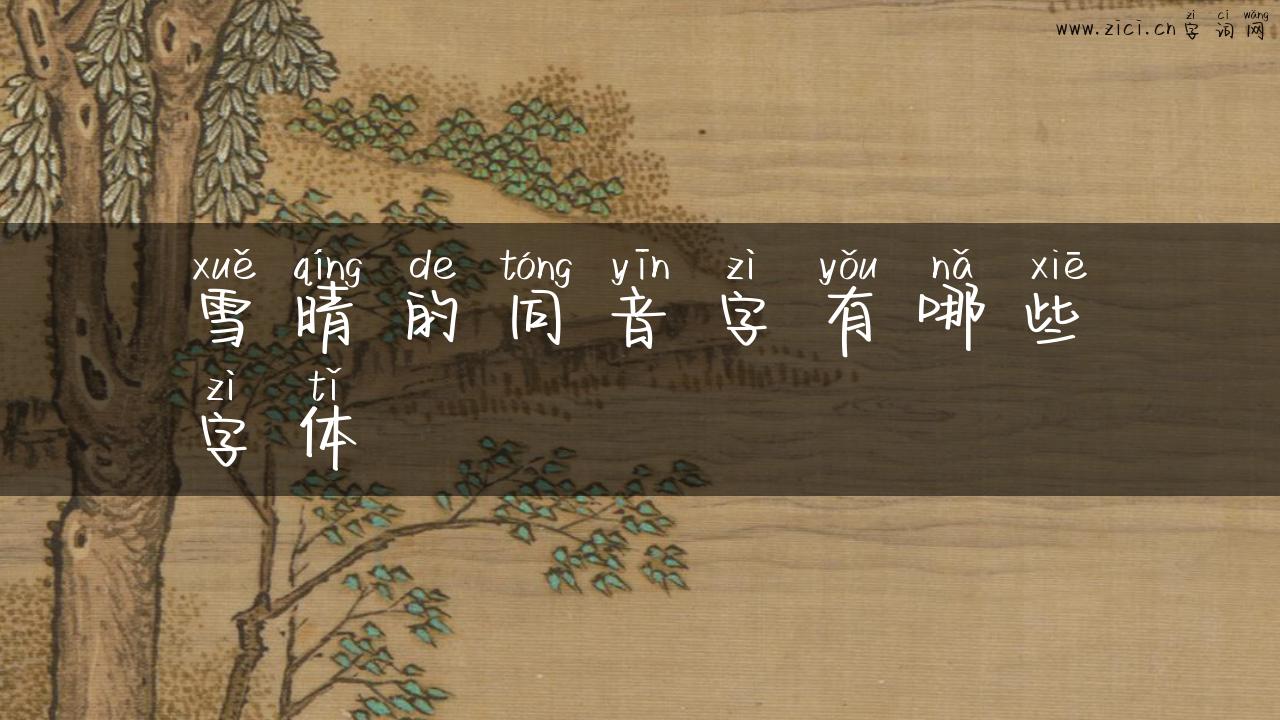 zì cí wǎng
www.zici.cn 字词网
xuě qíng de tóng yīn zì yǒu nǎ xiē
雪晴的同音字有哪些
zì tǐ
字体